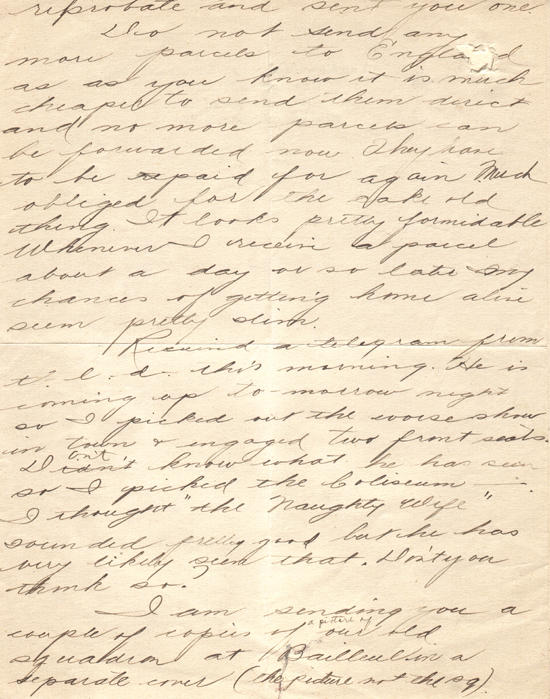 reprobate and sent you one.
Do not send any
more parcels to England
as as you know it is much
cheaper to send them direct
and no more parcels can
be forwarded now They have
to be repaid for again Much
obliged for the cake old
thing. It looks pretty formidable
Whenever I receive a parcel
about a day or so later my
chances of getting home alive
seem pretty slim.
Received a telegram from
this morning. He is
coming up to-morrow night
so I picked out the worse show
in town & engaged two front seats.
Don't know what he has seen
so I picked the Coliseum —.
I thought "the Naughty Wife"
sounded pretty good but he has
very likely seen that. Don't you
think so?
I am sending you a
couple of copies of a picture of our old
squadron at Bailleul in a
separate cover (the picture not the sq)